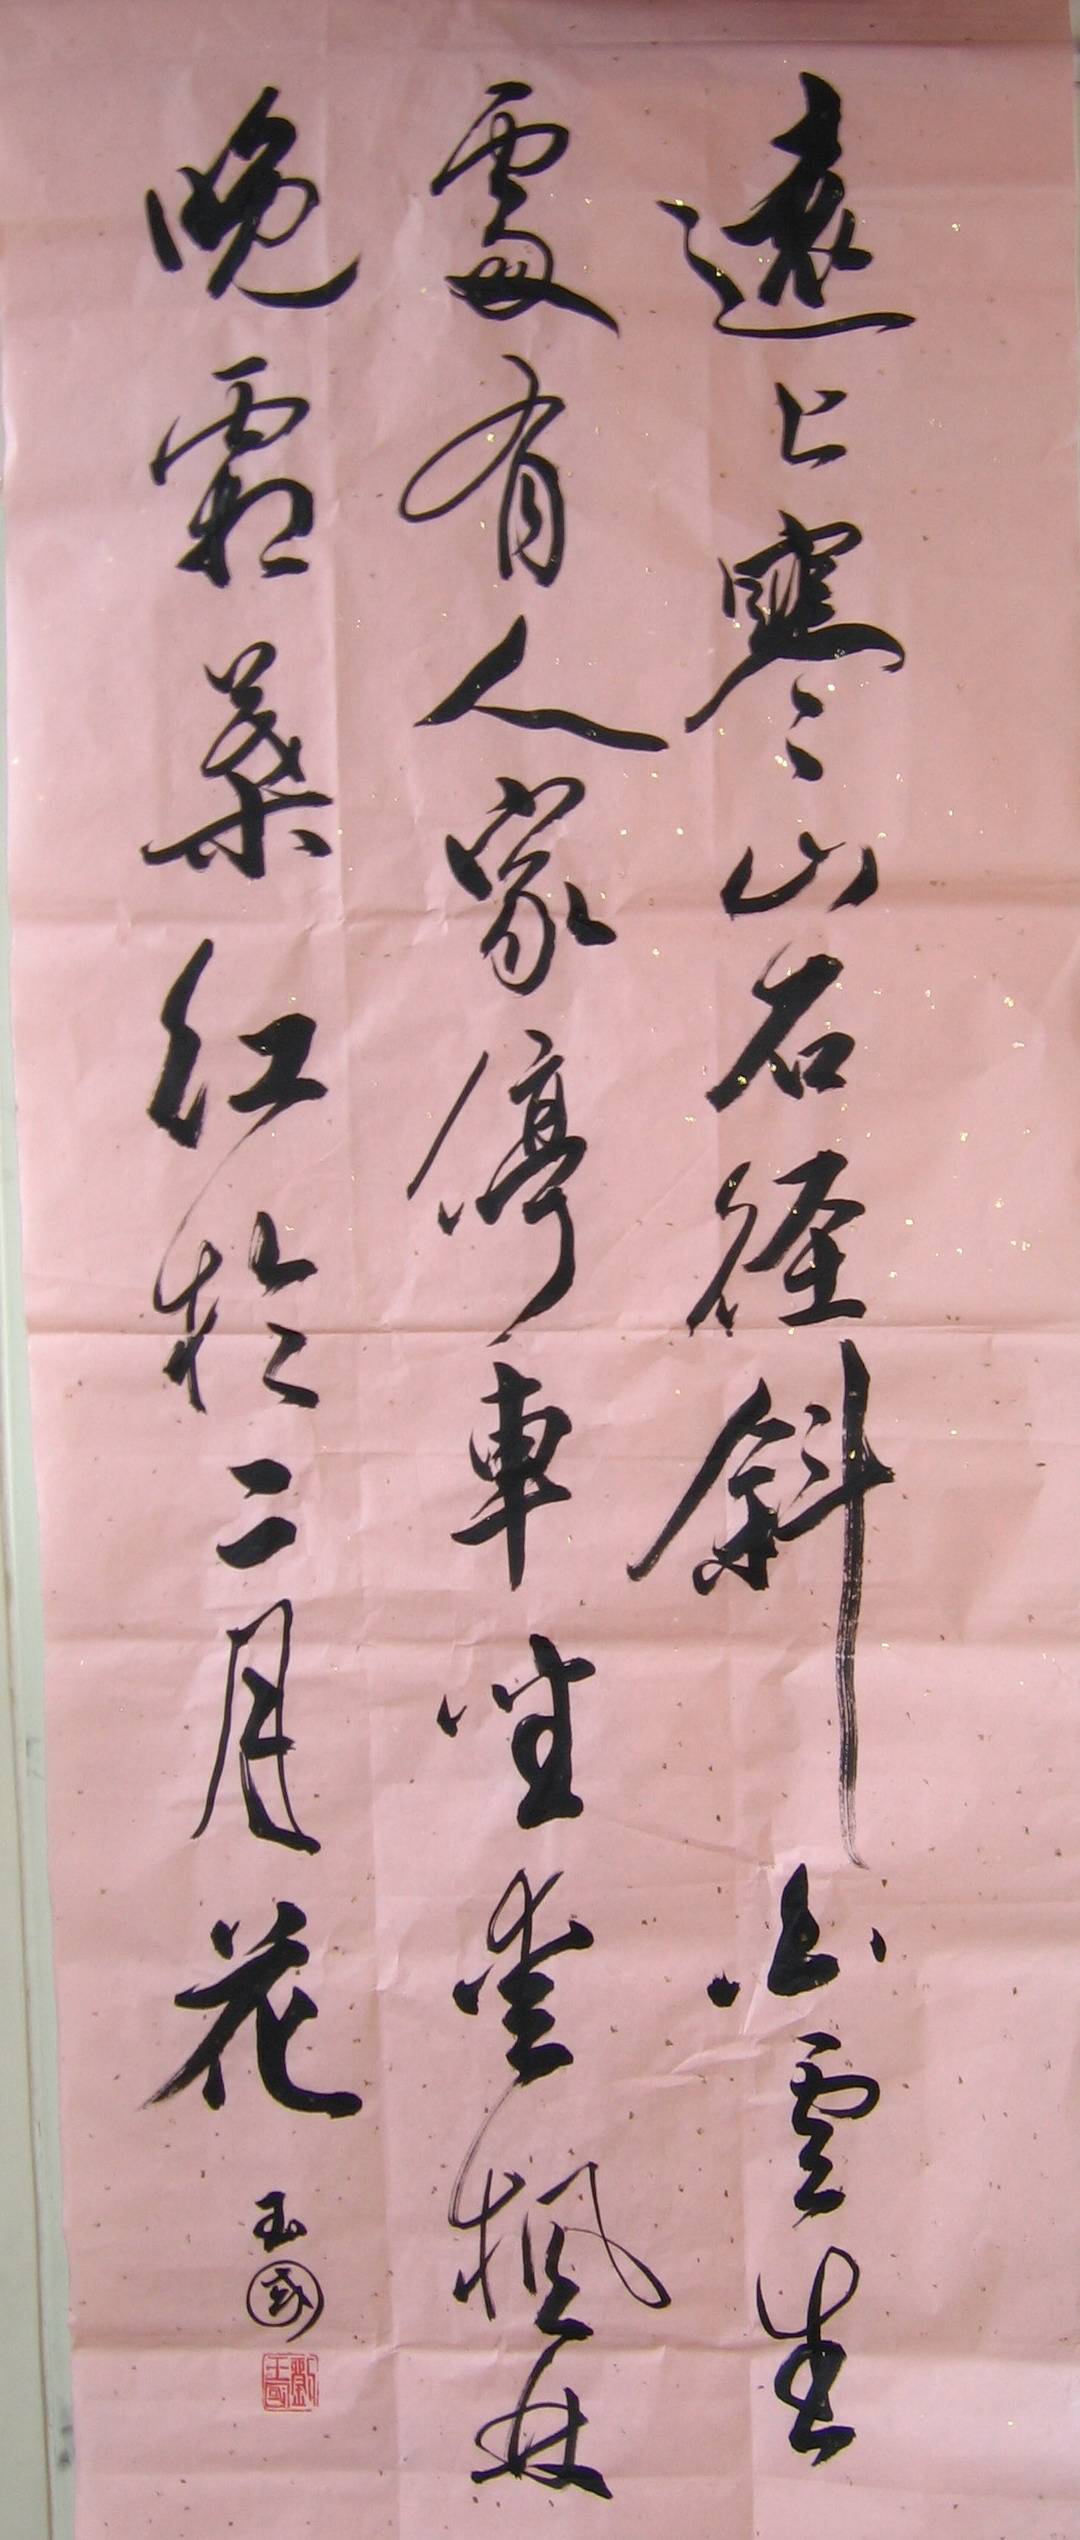 遠上寒山石径斜白雲生
處有人家停車坐愛楓林
晚霜葉紅於二月花
玉國
劉玉國